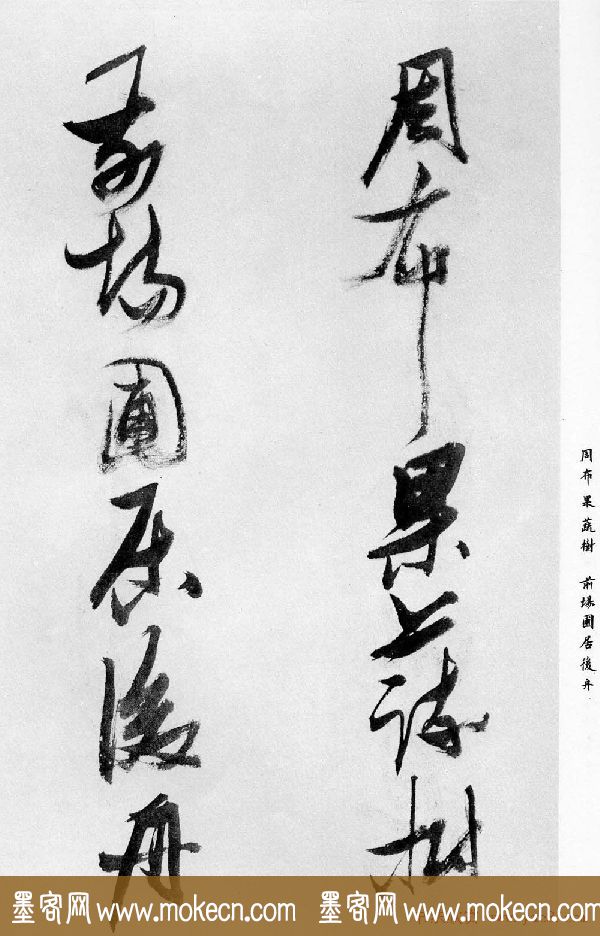 周布果蔬樹
前場圃居後舟
周布果蔬樹 前場圃居後舟
墨客网 www.mokecn.com 墨客网 www.mokecn.com